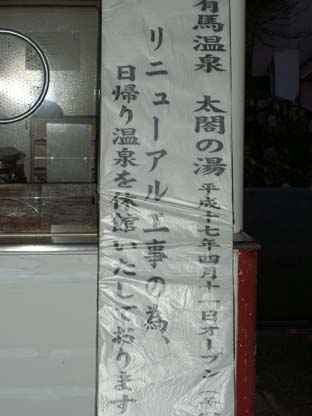 有馬温泉 太閤の湯 平成十七年四月十一日オープン(予
リニューアル工事の為、
日帰り温泉を休館いたしております